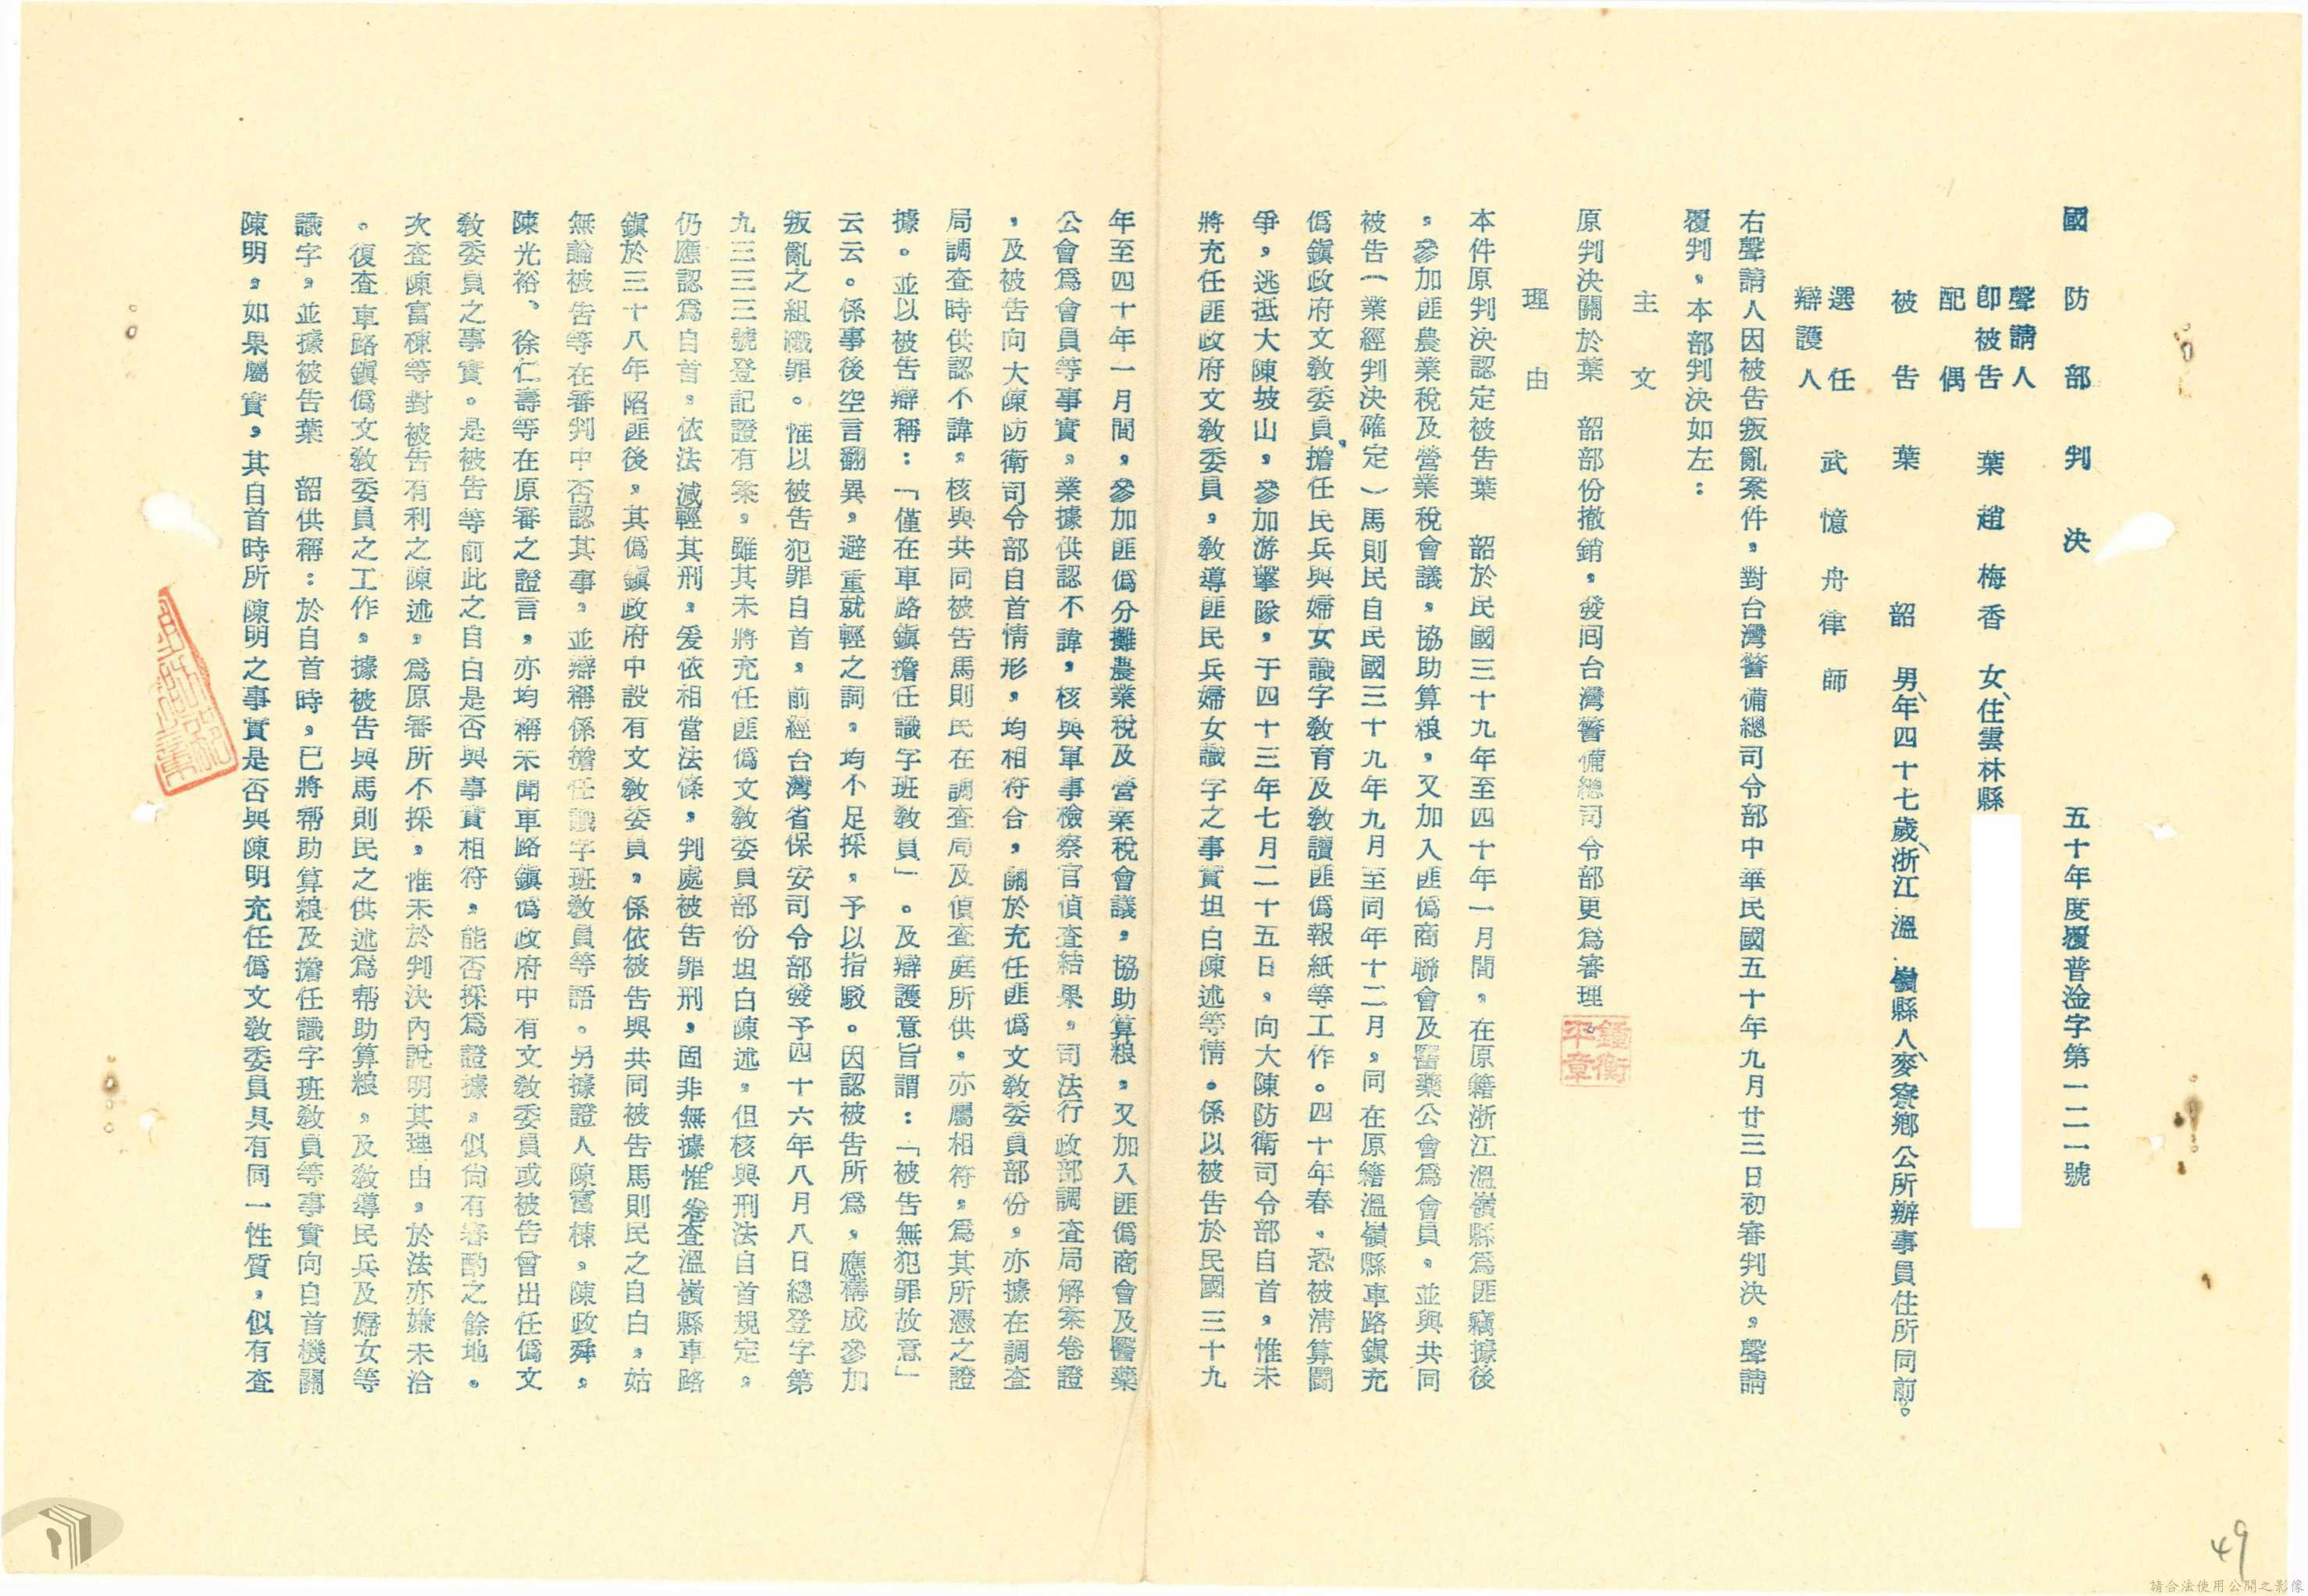 國防部判決　五十年度覆普淦字第一二一號
聲請人
即被告　葉趙梅香　女、住雲林縣
配偶
被告　葉　韶　男、年四十七歲、浙江溫嶺縣人、麥寮鄉公所辦事員住所同前。
選任
辯護人　武憶舟律師
右聲請人因被告叛亂案件，對台灣警備總司令部中華民國五十年九月廿三日初審判決，聲請
覆判，本部判決如左：
主文
原判決關於葉　韶部份撤銷，發回台灣警備總司令部更為審理。
理由
本件原判決認定被告葉　韶於民國三十九年至四十年一月間，在原籍浙江溫嶺縣為匪竊據後
，參加匪農業稅及營業稅會議，協助算粮，又加入匪偽商聯會及醫藥公會為會員，並與共同
被告（業經判決確定）馬則民自民國三十九年九月至同年十二月，同在原籍溫嶺縣車路鎮充
偽鎮政府文教委員，擔任民兵與婦女識字教育及教讀匪偽報紙等工作。四十年春，恐被清算鬪
爭，逃抵大陳坡山，參加游擊隊，于四十三年七月二十五日，向大陳防衛司令部自首，惟未
將充任匪政府文教委員，教導匪民兵婦女識字之事實坦白陳述等情。係以被告於民國三十九
年至四十年一月間，參加匪偽分攤農業稅及營業稅會議，協助算粮，又加入匪偽商會及醫藥
公會為會員等事實，業據供認不諱，核與軍事檢察官偵查結果，司法行政部調查局解案卷證
，及被告向大陳防衛司令部自首情形，均相符合，關於充任匪偽文教委員部份，亦據在調查
局調查時供認不諱，核與共同被告馬則民在調查局及偵查庭所供，亦屬相符，為其所憑之證
據。並以被告辯稱：「僅在車路鎮擔任識字班教員」。及辯護意旨謂：「被告無犯罪故意」
云云。係事後空言翻異，避重就輕之詞，均不足採，予以指駁。因認被告所為，應構成參加
叛亂之組織罪。惟以被告犯罪自首，前經台灣省保安司令部發予四十六年八月八日總登字第
九三三三號登記證有案，雖其未將充任匪偽文教委員部份坦白陳述，但核與刑法自首規定，
仍應認為自首，依法減輕其刑，爰依相當法條，判處被告罪刑，固非無據。惟卷查溫嶺縣車路
鎮於三十八年陷匪後，其偽鎮政府中設有文教委員，係依被告與共同被告馬則民之自白，姑
無論被告等在審判中否認其事，並辯稱係擔任識字班教員等語。另據證人陳富棟，陳政舜，
陳光裕、徐仁壽等在原審之證言，亦均稱未聞車路鎮偽政府中有文教委員或被告曾出任偽文
教委員之事實。是被告等前此之自白是否與事實相符，能否採為證據，似尚有審酌之餘地。
次查陳富棟等對被告有利之陳述，為原審所不採，惟未於判決內說明其理由，於法亦嫌未洽
。復查車路鎮偽文教委員之工作，據被告與馬則民之供述為帮助算粮，及教導民兵及婦女等
識字，並據被告葉　韶供稱：於自首時，已將帮助算粮及擔任識字班教員等事實向自首機關
陳明，如果屬實，其自首時所陳明之事實是否與陳明充任偽文教委員具有同一性質，似有查
鍾衡平章
49
請合法使用公開之影像